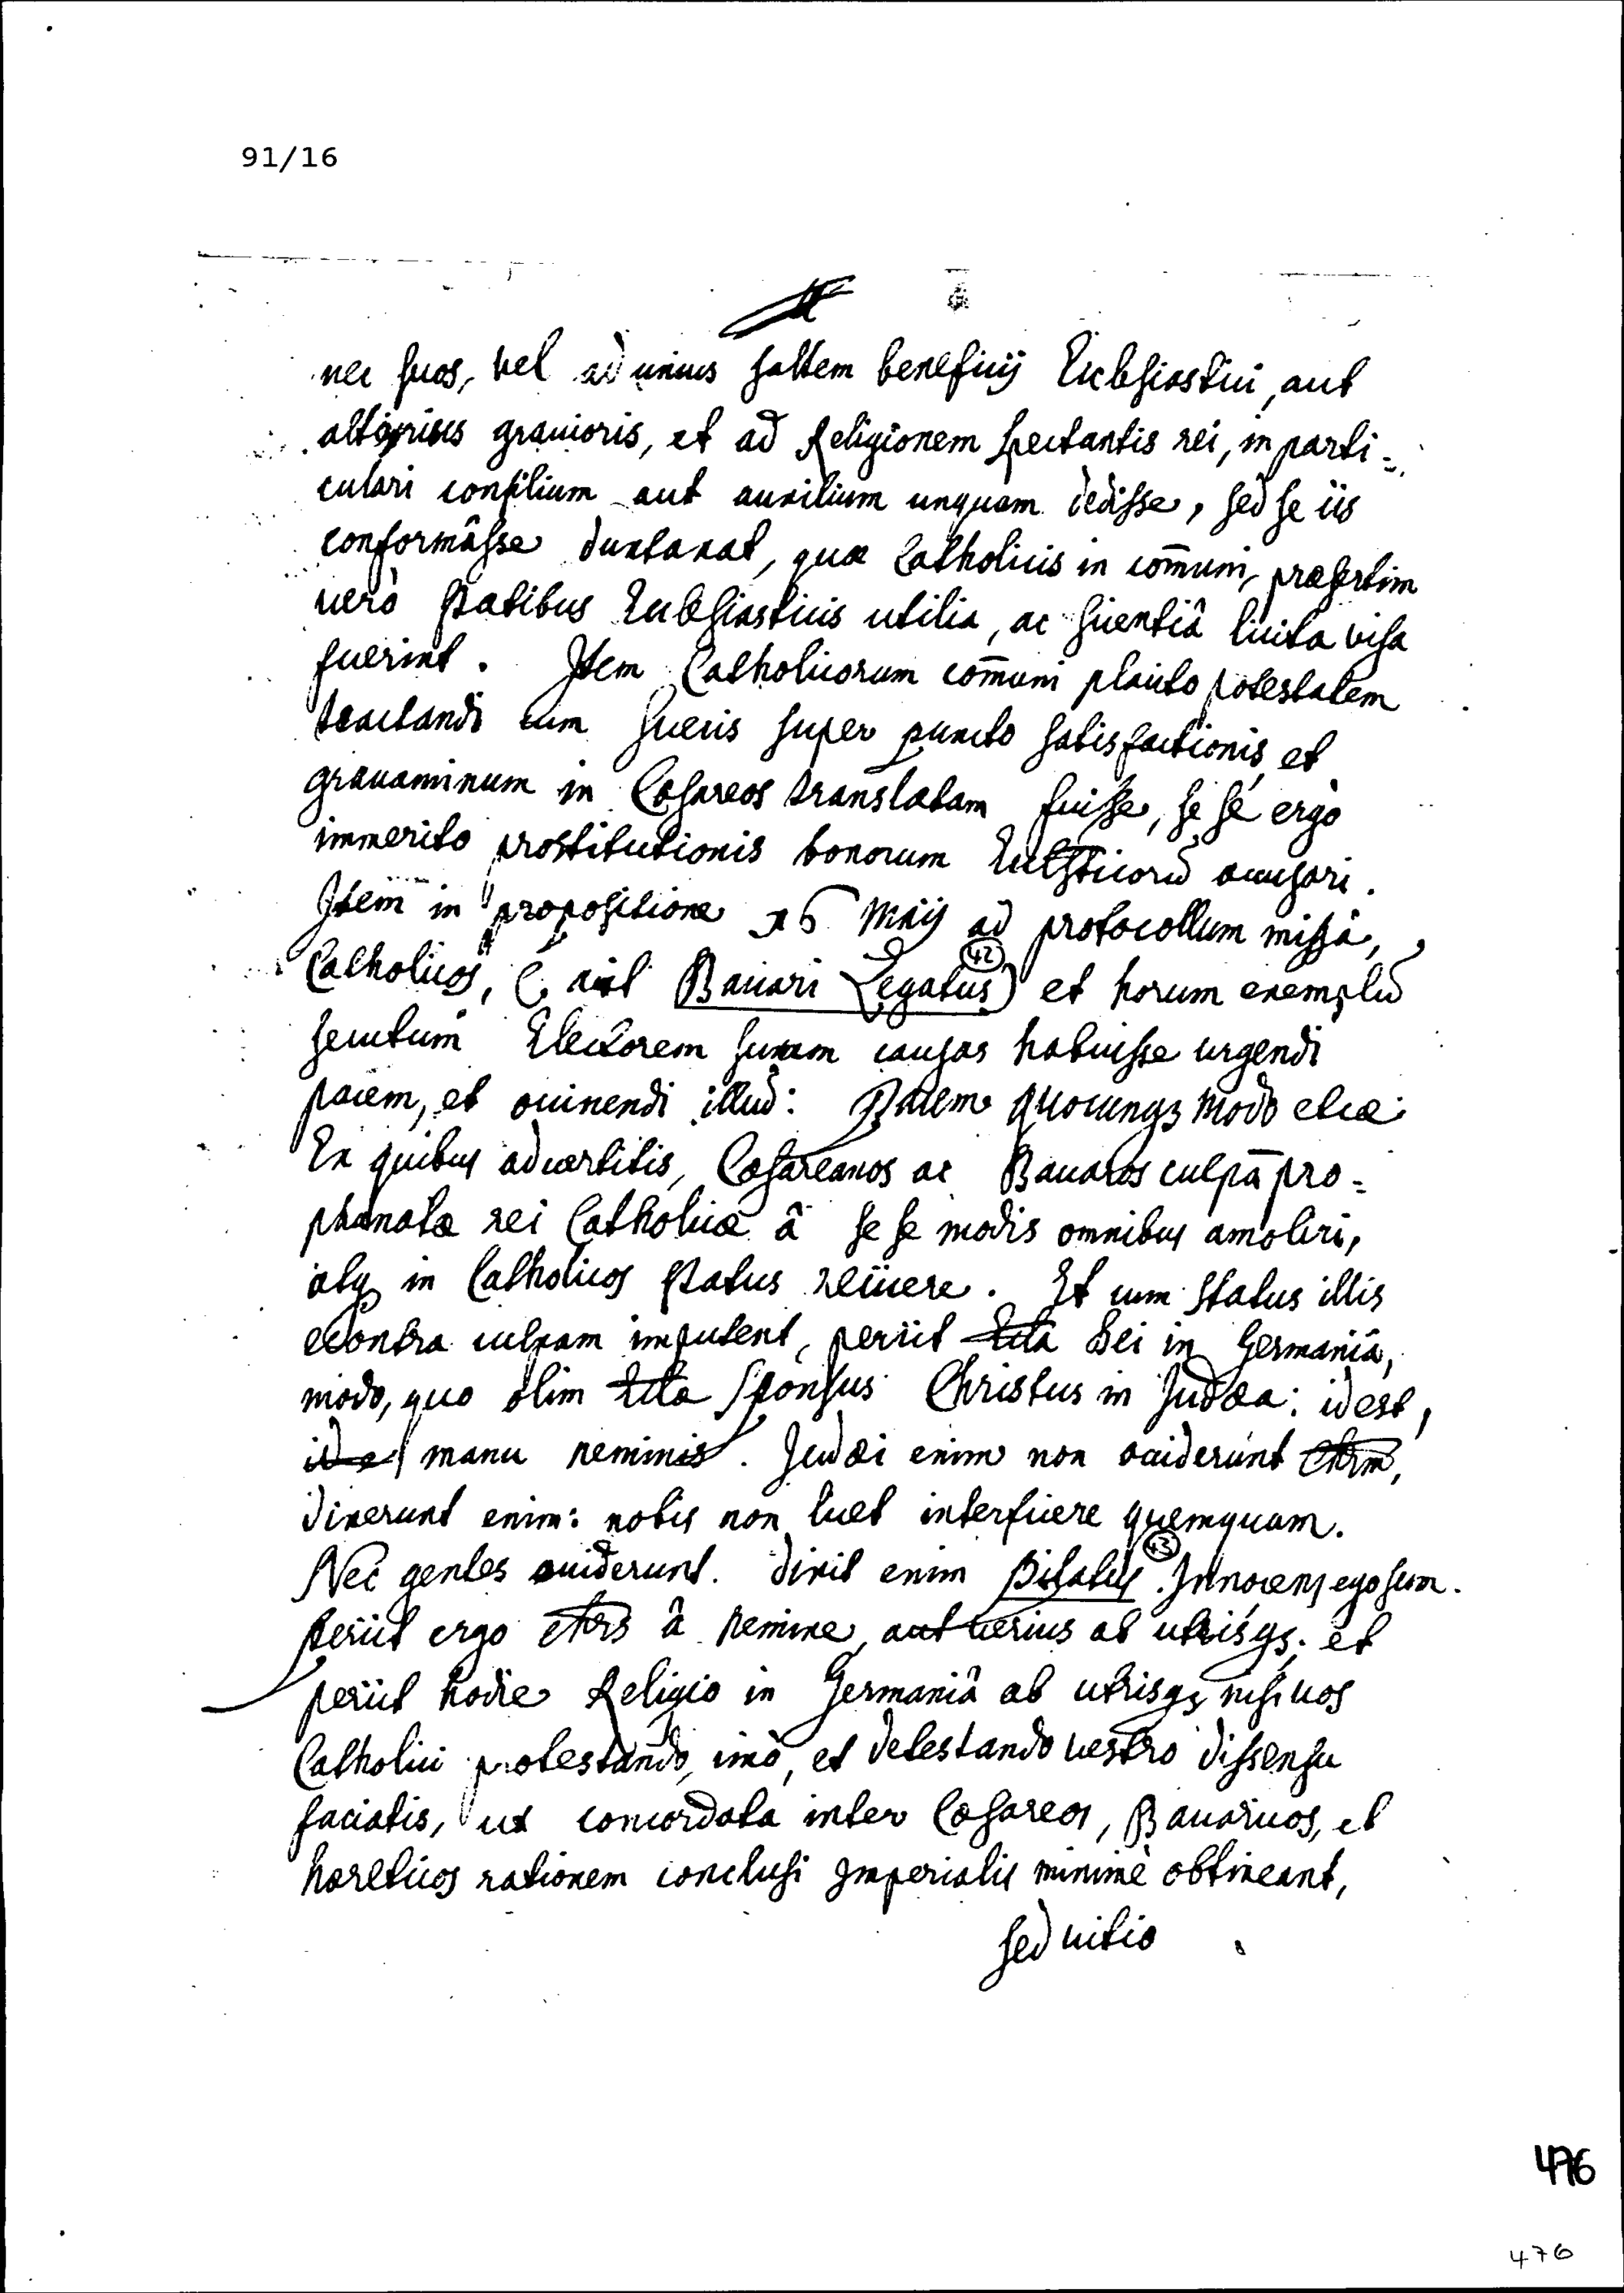 91/16
nec suos, vel ad unius saltem beneficij Ecclesiastici, aut
alterius grauioris, et ad Religionem spectantis rei, in parti=
culari consilium aut auxilium unquam dedisse, sed se iis
conformâsse duntaxat, quæ Catholicis in com̄uni, præsertim
verò statibus Ecclesiasticis utilia, ac scientiâ licita visa
fuerint. Item Catholicorum com̄uni placito potestatem
tractandi cum Suecis super puncto satisfactionis et
grauaminum in Cæsareos translatam fuisse, se sé ergò
immerito prostitutionis bonorum Ecclsticorū accusari.
Item in propositione 16 Maij ad protocollum missâ,
Catholicos, (ait Bauari Legatus) et horum exemplū
42
secutum Electorem suum causas habuisse urgendi
pacem, et occinendi illud: Pacem quocunq; modo etcæ:
Ex quibus aduertitis, Cæsareanos ac Bauaros culpā pro=
phanatæ rei Catholicæ â se se modis omnibus amoliri,
atq; in Catholicos status reiicere. Et cum status illis
econtra culpam imputent, periit Eccla Dei in Germaniâ,
modo, quo olim Eccla Sponsus Christus in Judæa: id est,
id e manu neminis. Judæi enim non occiderunt Chrm,
dixerunt enim: nobis non licet interficere quemquam.
Nec gentes occiderunt. dixit enim Pilatus Innocens ego sum.
43
periit ergo Chrs â nemine, aut uerius ab utrisq; et
periit hodie Religio in Germaniâ ab utrisq; nisi uos
Catholici protestando, imò, et detestando uestro dissensu
faciatis, ut concordata inter Cæsareos, Bauaricos, et
hæreticos rationem conclusi Imperialis minimè obtineant,
sed uitio
476
476